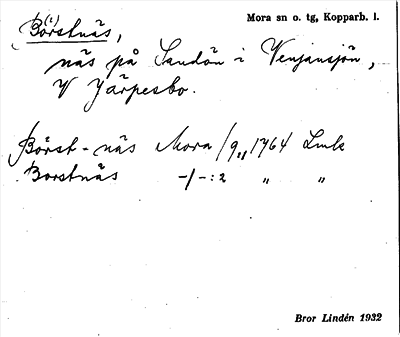 Mora sn o. tg, Kopparb. l.
B(i)örstnäs,
näs på Sandön i Venjansjön,
V Järpesbo.
Börst-näs Mora /9 1764 Lmk
Borstnäs -/-:2 " "
Bror Lindén 1932